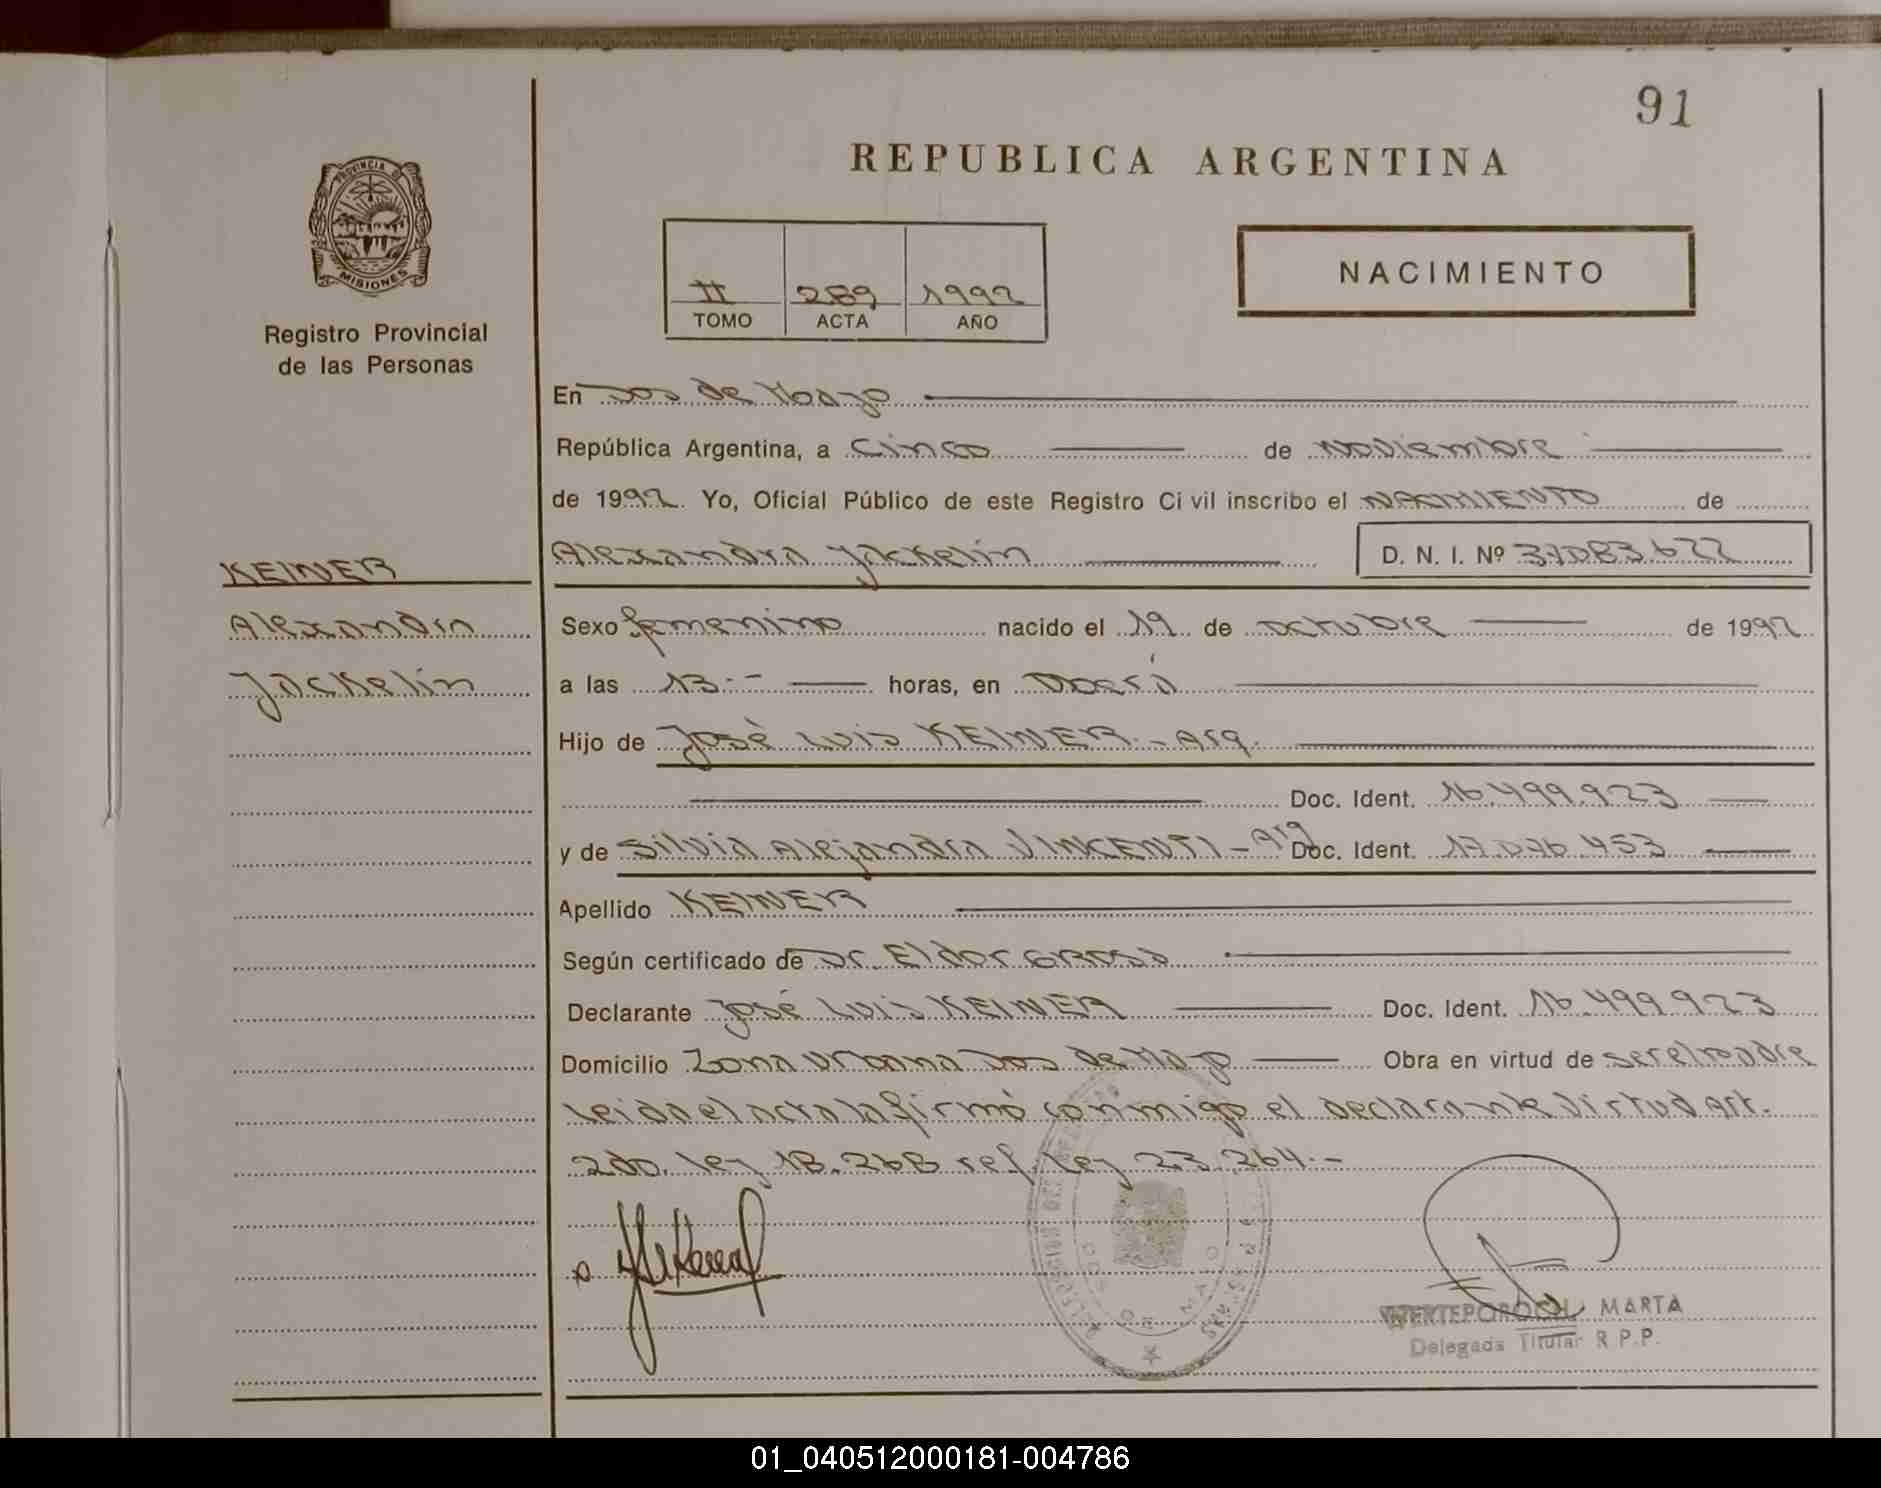 91
REPUBLICA ARGENTINA
PROVINCIA DE
MISIONES
Registro Provincial
de las Personas
II 289 1992
TOMO ACTA AÑO
NACIMIENTO
En Dos de Mayo
República Argentina, a Cinco de Noviembre
de 1992. Yo, Oficial Público de este Registro Civil inscribo el NACIMIENTO de
KEINER
Alexandra
Jackelin
Alexandra Jackelin D. N. I. Nº 37.083.622
Sexo femenino nacido el 19 de octubre de 1992
a las 13.-- horas, en Oberá
Hijo de José Luis KEINER.- Arg.
Doc. Ident. 16.499.923
y de Silvia Alejandra VINCENTI - Arg Doc. Ident. 17.076.453
Apellido KEINER
Según certificado de Dr. Eldor
Declarante José Luis KEINER Doc. Ident. 16.499.923
Domicilio Zona Urbana Dos de Mayo Obra en virtud de ser el padre
leida el acta la firmó conmigo el declarante Virtud Art.
2do. ley 18.268 ref. ley 23.264.-
DOS DE MAYO
MARTA
Delegada Titular R.P.P.
01_040512000181-004786